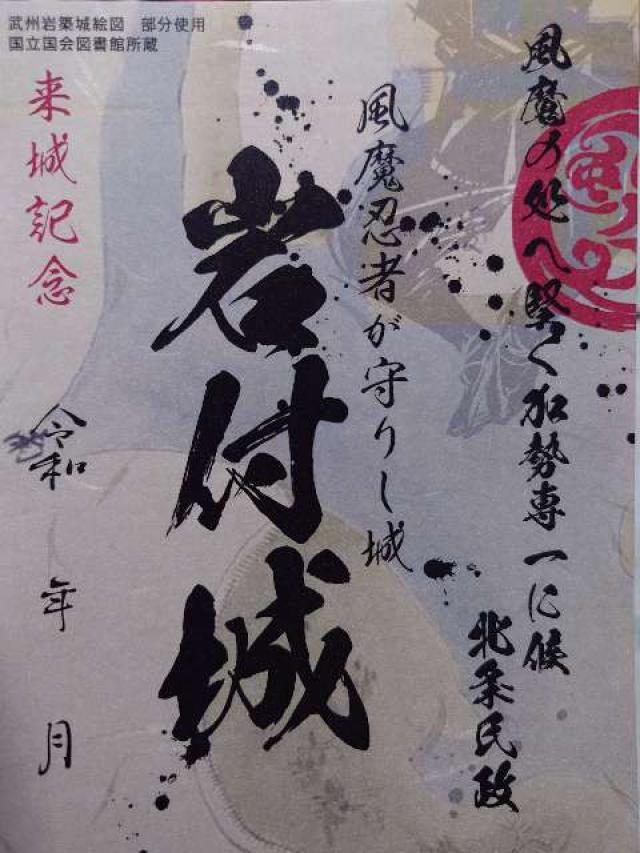 武州岩築城絵図　部分使用
国立国会図書館所蔵
風魔の処へ堅く加勢専一に候
北条氏政
風魔忍者が守りし城
岩付城
来城記念
令和　年　月